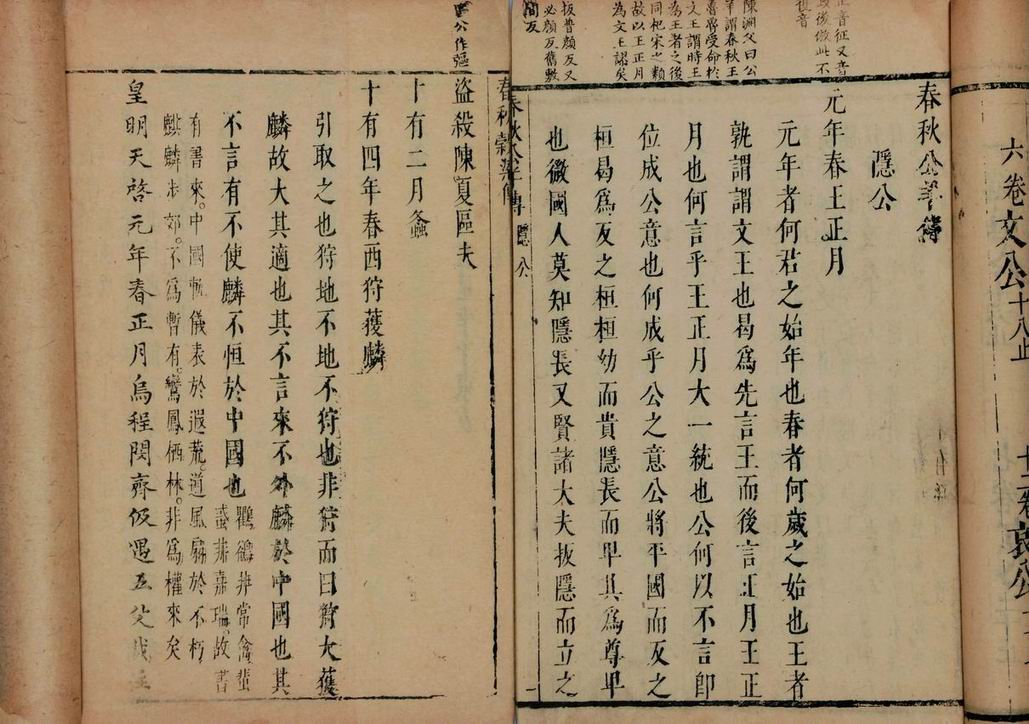 六卷文公十八止
春秋公羊傳
隱公
元年春王正月
元年者何君之始年也春者何歲之始也王者
孰謂謂文王也曷爲先言王而後言正月王正
月也何言乎王正月大一統也公何以不言即
位成公意也何成乎公之意公將平國而反之
桓曷爲反之桓桓幼而貴隱長而卑其爲尊卑
也微國人莫知隱長又賢諸大夫扳隱而立之
羊謂春秋王
魯魯受命於
文王謂時王
爲王者之後
同杞宋之類
故以王正月
爲文王謬矣
扳普顏反又
必顏反舊敷
間反
春秋穀梁傳
隱公
盜殺陳夏區夫
十有二月螽
十有四年春西狩獲麟
引取之也狩地不地不狩也非狩而曰狩大獲
麟故大其適也其不言來不外麟於中國也其
不言有不使麟不恒於中國也
鸜鵒非常禽蜚
蜮非嘉瑞。故書
有書來。中國軌儀表於遐荒。道風扇於不朽
麒麟步郊。不爲暫有。鸞鳳栖林。非爲權來矣
皇明天啓元年春正月烏程閔齊伋遇五父
公作彄